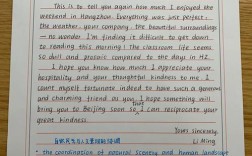 This is to tell you again how much I enjoyed the
weekend in Hangzhou. Everything was just perfect:
the weather, your company, the beautiful surroundings
— no wonder I'm finding it difficult to get down
to reading this morning! The classroom life seems
so dull and prosaic compared to the days in HZ.
I hope you know how much I appreciate your
hospitality, and your thoughtful kindness to me. I
count myself fortunate indeed to have such a generous
and charming friend as you. I hope something will
bring you to Beijing soon so that I can reciprocate your
great kindness.
Yours sincerely,
Li Ming
the combination of natural scenery and human landscape